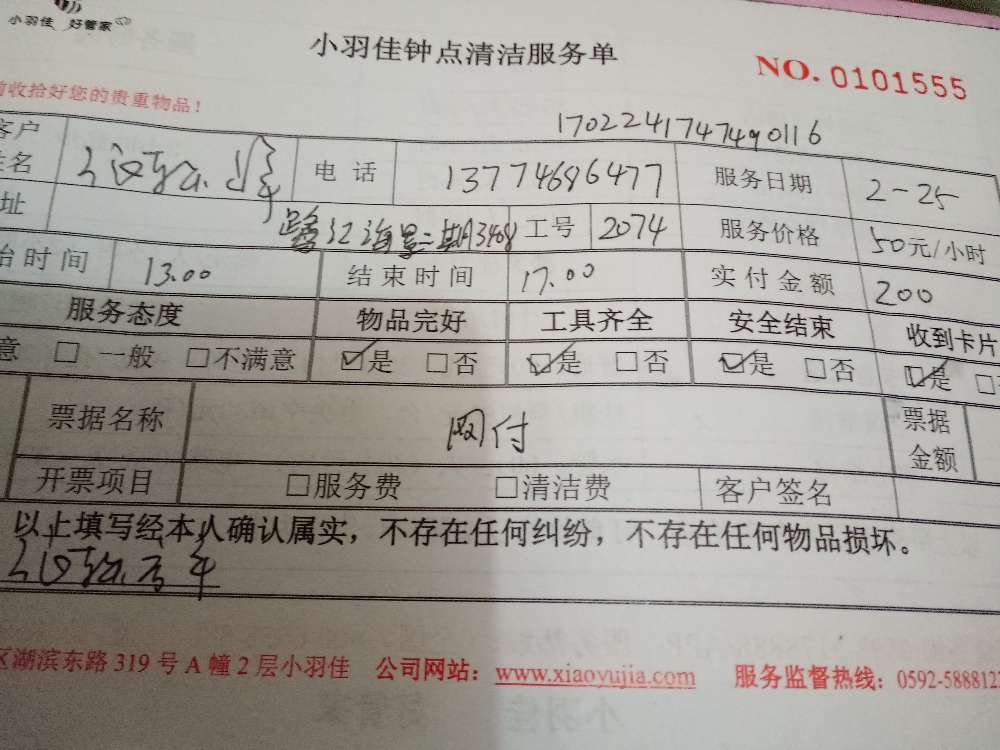 小羽佳 好管家
小羽佳钟点清洁服务单
NO. 0101555
前收拾好您的贵重物品！
1702241747490116
客户姓名 电话 13774686477 服务日期 2-25
址 鹭江海景二期A3408 工号 2074 服务价格 50元/小时
始时间 13.00 结束时间 17.00 实付金额 200
服务态度 物品完好 工具齐全 安全结束 收到卡片
意 □ 一般 □不满意 ☑是 □否 ☑是 □否 ☑是 □否 ☑是 □
票据名称 网付 票据金额
开票项目 □服务费 □清洁费 客户签名
以上填写经本人确认属实，不存在任何纠纷，不存在任何物品损坏。
区湖滨东路 319 号 A 幢 2 层小羽佳 公司网站：www.xiaoyujia.com 服务监督热线：0592-588812